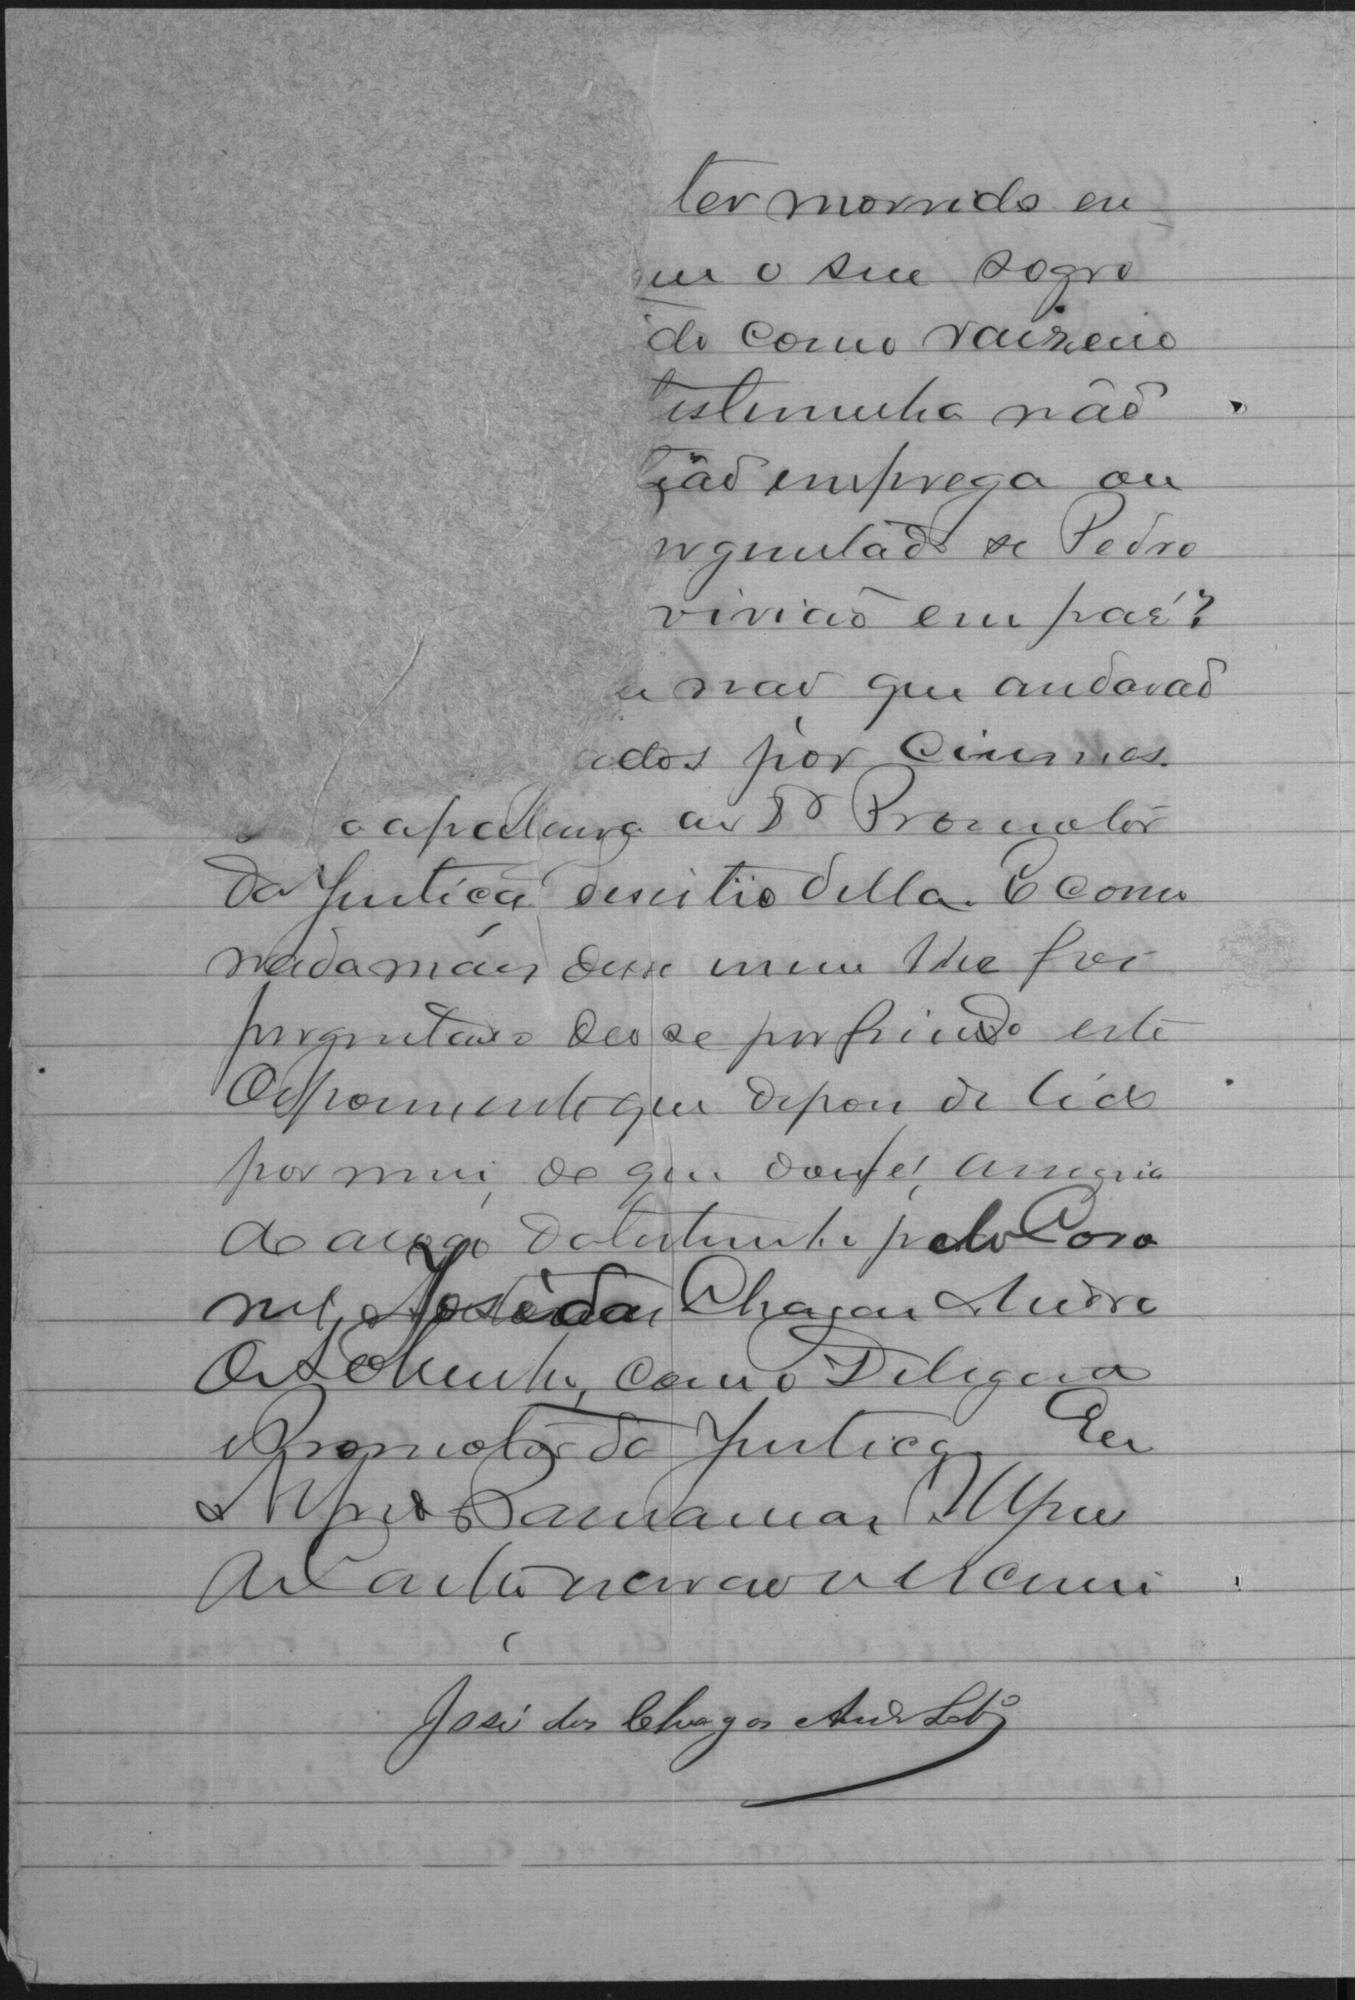 ter morrido en
que o seu sogro
do como vaizeiro
testemunha não
ção emprega ou
rguntado se Pedro
vivião em paz?
nao que andavão
ados por ciumes.
a palavra ao Dr Promotor
da Justiça desistio della. E como
nada mais disse nem lhe foi
perguntado deo se por findo este
depoimento que depois de lido
por mim, do que dou fé, assigna
do a rogo da testemunha pelo Coro
nel, José das Chagas Andre
como Delegado
e Promotor da Justiça. Eu
escrevi
José das Chagas Andr Sobº